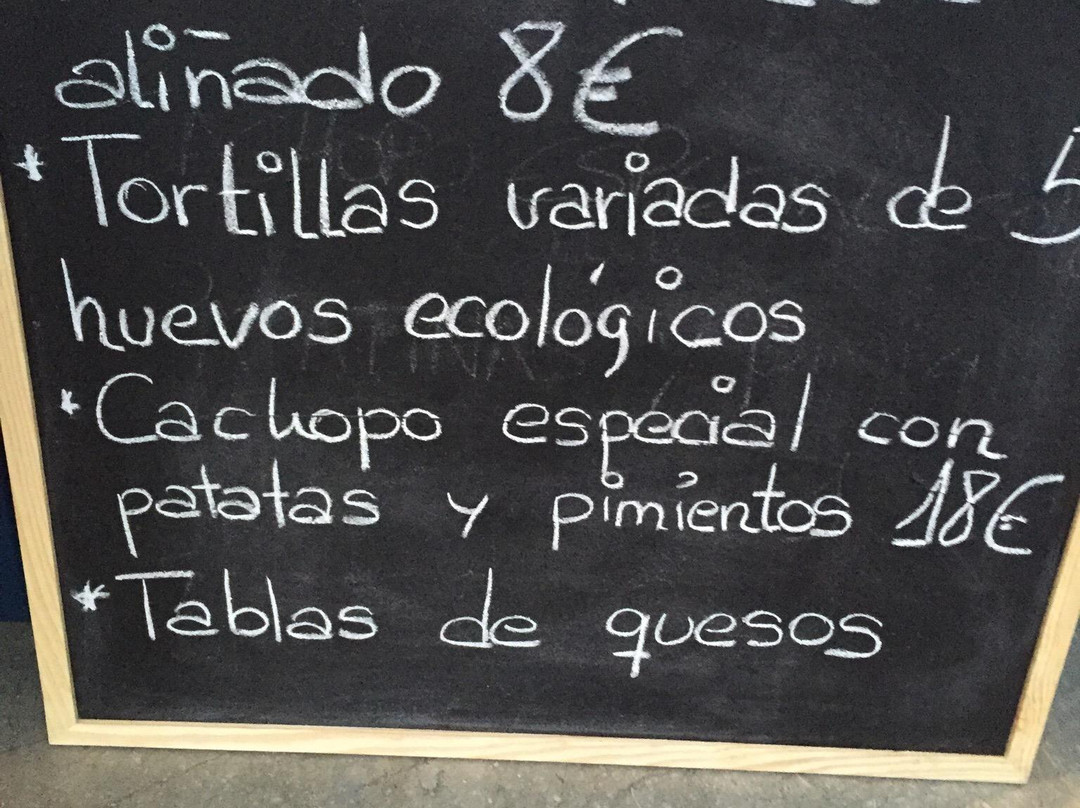 aliñado 8€
* Tortillas variadas de 5
huevos ecológicos
* Cachopo especial con
patatas y pimientos 18€
* Tablas de quesos